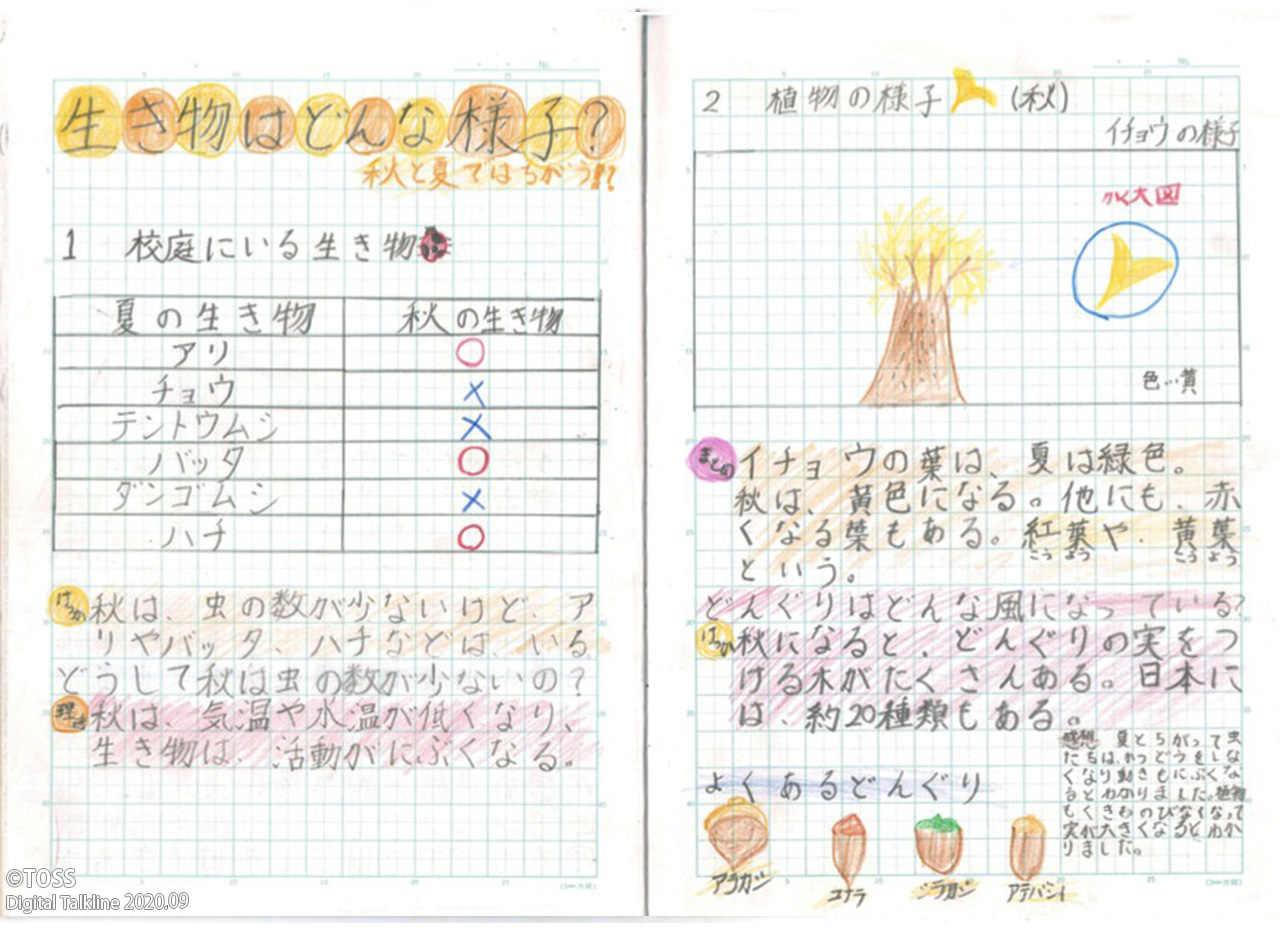 生き物はどんな様子?
秋と夏ではちがう!?
1 校庭にいる生き物
夏の生き物 秋の生き物
アリ ○
チョウ ×
テントウムシ ×
バッタ ○
ダンゴムシ ×
ハチ ○
けっか 秋は、虫の数が少ないけど、ア
リやバッタ、ハチなどは、いる
どうして秋は虫の数が少ないの?
理由 秋は、気温や水温が低くなり、
生き物は、活動がにぶくなる。
©TOSS
Digital Talkline 2020.09
No.
2 植物の様子 (秋)
イチョウの様子
かく大図
色…黄
まとめ イチョウの葉は、夏は緑色。
秋は、黄色になる。他にも、赤
くなる葉もある。紅葉や、黄葉
こうよう こうよう
という。
どんぐりはどんな風になっている?
けっか 秋になると、どんぐりの実をつ
ける木がたくさんある。日本に
は、約20種類もある。
感想 夏とちがって虫
たちは、かつどうをしな
くなり動きもにぶくな
るとわかりました。植物
もくきものびなくなって
実が大きくなるとわか
りました。
よくあるどんぐり
アラカシ
コナラ
シラカシ